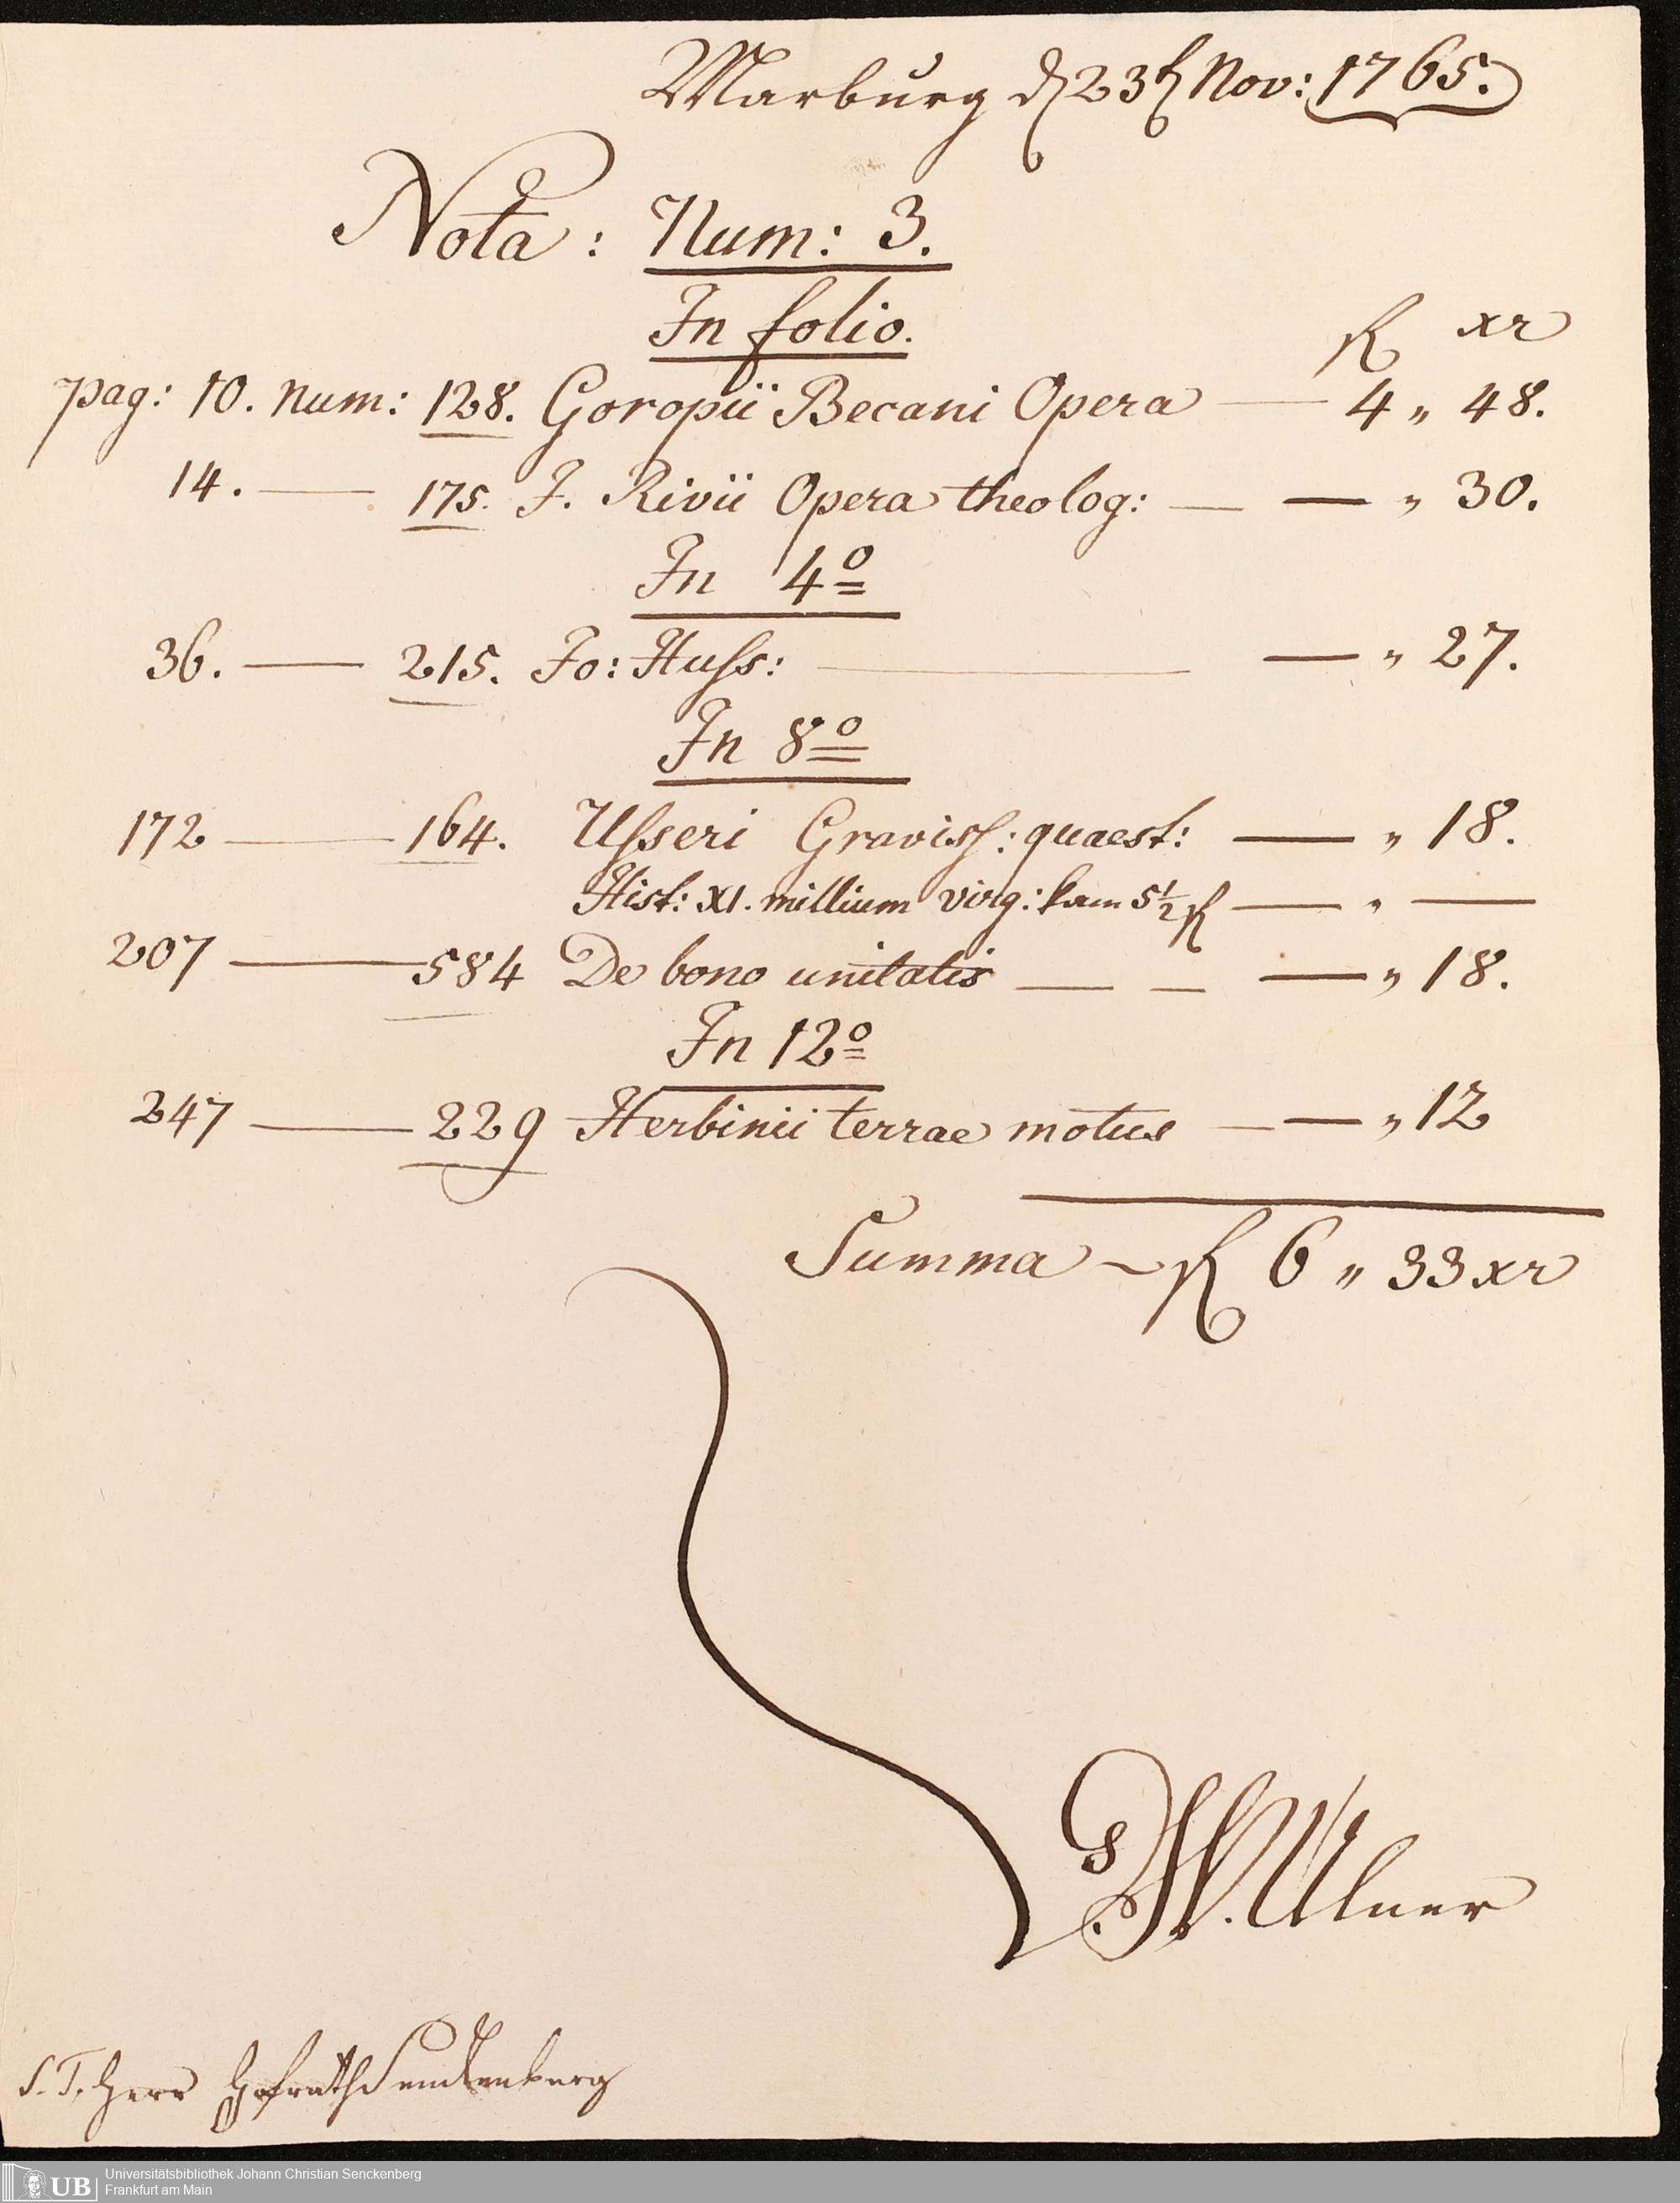 Marburg d 23t Nov: 1765.
Nota: Num: 3.
In folio.
fl xr
pag: 10. num: 128. Goropii Becani Opera — 4 " 48.
14. — 175. J. Rivii Opera theolog: — — " 30.
In 4º
36. — 215. Jo: Huſs: — — " 27.
In 8º
172 — 164. Uſseri Graviſſ: quaest: — " 18.
Hist: XI. millium virg: kam 5½ fl — " —
207 — 584 De bono unitatis — — — " 18.
In 12º
247 — 229 Herbinii terrae motus — — " 12
Summa ~ fl 6 " 33 xr
Ulner
S. T. Herr Hofrath Senckenberg
UB Universitätsbibliothek Johann Christian Senckenberg
Frankfurt am Main